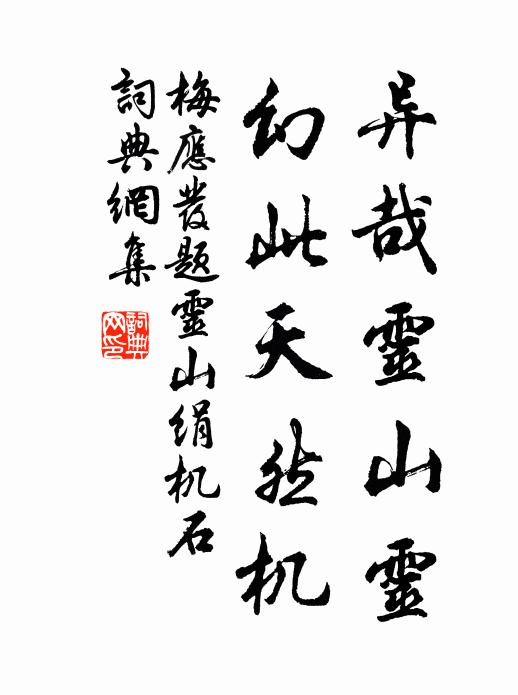 异哉靈山靈
幻此天然机
梅應發題靈山绢机石
詞典網集
詞典
网印